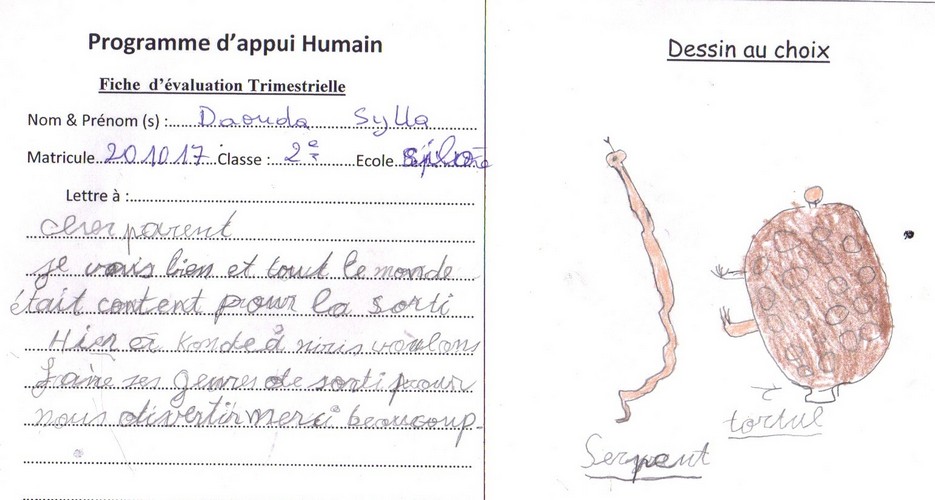 Programme d'appui Humain
Fiche d'évaluation Trimestrielle
Nom & Prénom (s) : Daouda Sylla
Matricule 201017 Classe : 2e Ecole
Lettre à :
cher parent
je vais bien et tout le monde
était content pour la sorti
Hier à nous voulons
faire ses genres de sorti pour
nous divertir merci beaucoup.
Dessin au choix
Serpent
tortul